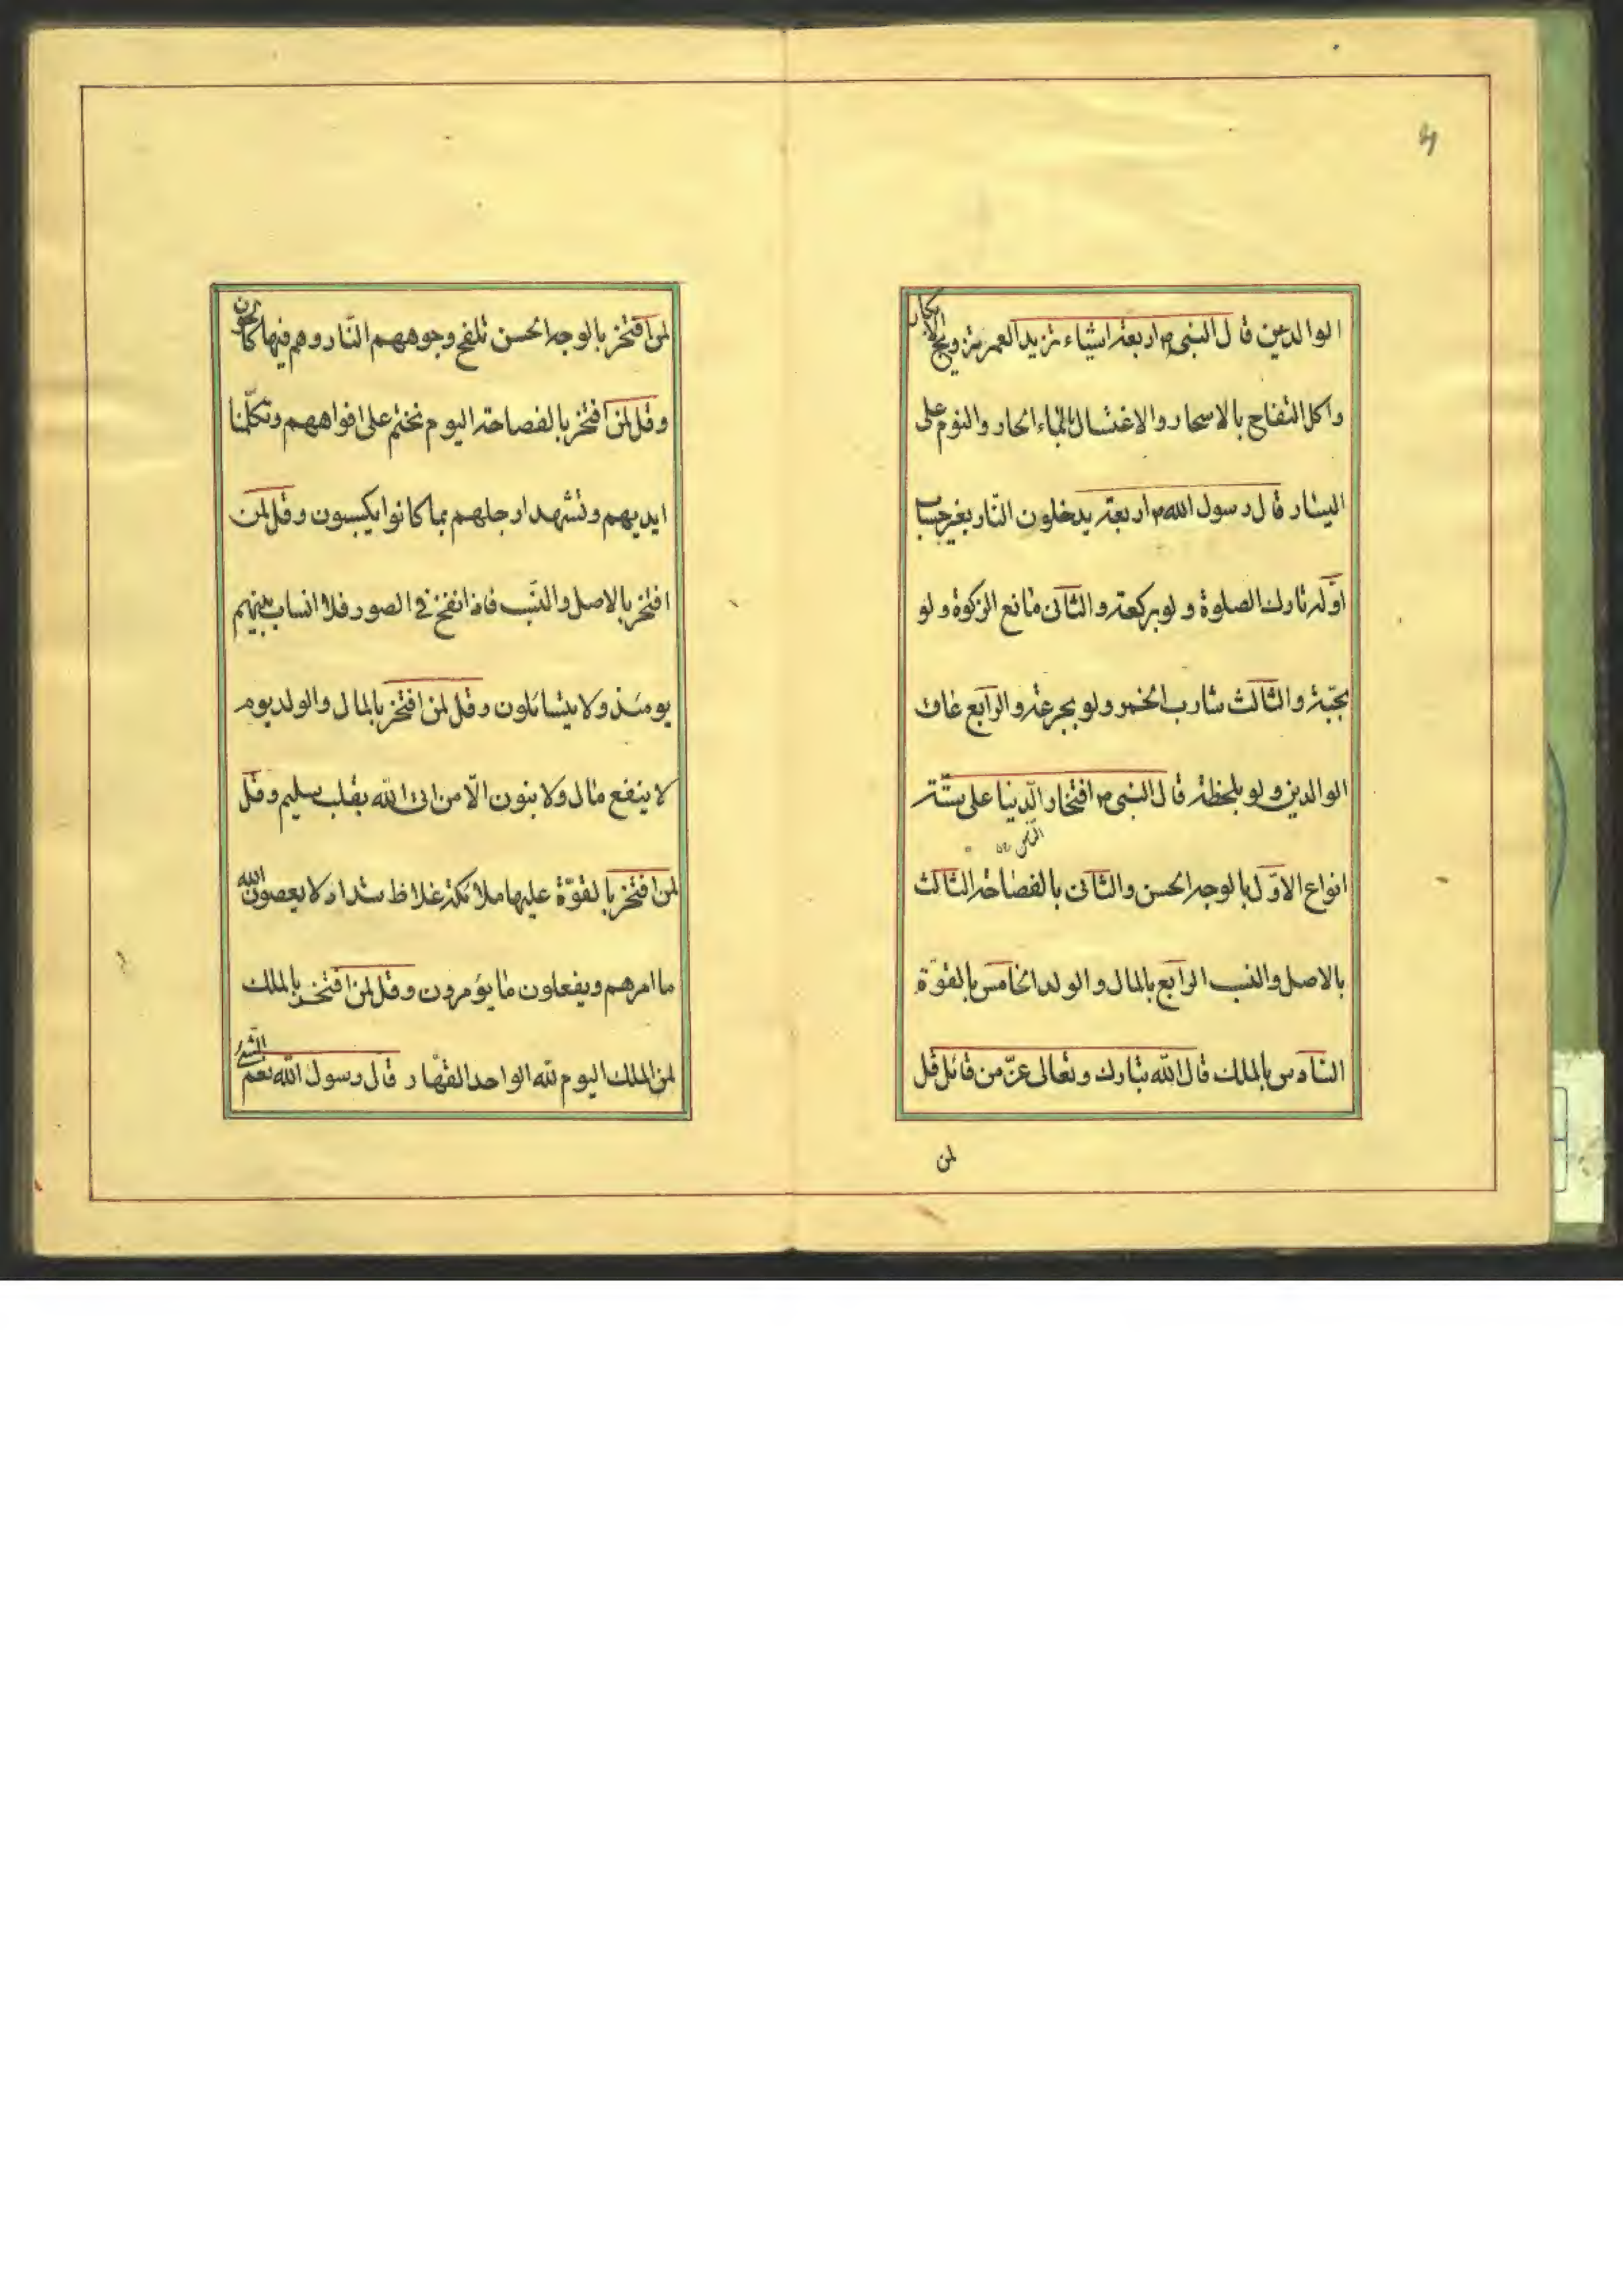 ۴
الوالدين قال النبى ص اربعة اشياء تزيد العمر تزويج الابكار
واكل التفاح بالاسحار والاغتسال بالماء الحار والنوم على
اليسار قال رسول الله ص اربعة يدخلون النّار بغير حساب
اوّله تارك الصلوة ولو بركعة والثّانى مانع الزكوة ولو
بحبّة والثّالث شارب الخمر ولو بجرعة والرّابع عاق
الوالدين ولو بلحظة قال النبى ص افتخار الدّنيا على ستّة
انواع الاوّل بالوجه الحسن والثّانى بالفصاحة الثّالث
بالاصل والنسب الرّابع بالمال والولد الخامس بالقوّة
السّادس بالملك قال الله تبارك وتعالى عزّ من قائل قل
لمن
لمن افتخر بالوجه الحسن تلفح وجوههم النّار وهم فيها كالحون
وقل لمن افتخر بالفصاحة اليوم نختم على افواههم وتكلّمنا
ايديهم وتشهد ارجلهم بما كانوا يكسبون وقل لمن
افتخر بالاصل والنّسب فاذا نفخ فى الصور فلا انساب بينهم
يومئذ ولا يتسائلون وقل لمن افتخر بالمال والولد يوم
لا ينفع مال ولا بنون الّا من اتى الله بقلب سليم وقل
لمن افتخر بالقوّة عليها ملائكة غلاظ شداد لا يعصون الله
ما امرهم ويفعلون ما يؤمرون وقل لمن افتخر بالملك
لمن الملك اليوم لله الواحد القهّار قال رسول الله نعم